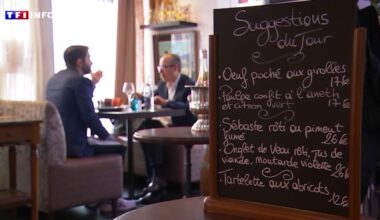 TF1 INFO
Suggestions
du Jour
Oeuf poché aux girolles
17€
Poulpe confit à l'aneth
et citron vert 17€
Sébaste rôti au piment
fumé 26€
Onglet de Veau rôti, Jus de
viande, moutarde violette 26€
Tartelette aux abricots
12€